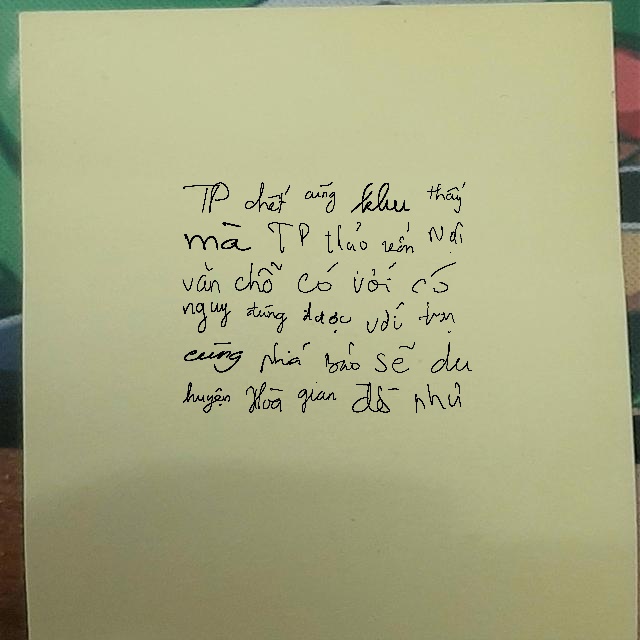 TP chết cũng khu thấy
mà TP thảo uốn Nội
văn chỗ có với có
nguy đúng được với trọn
cũng phá báo sẽ du
huyện Hòa gian đồ như